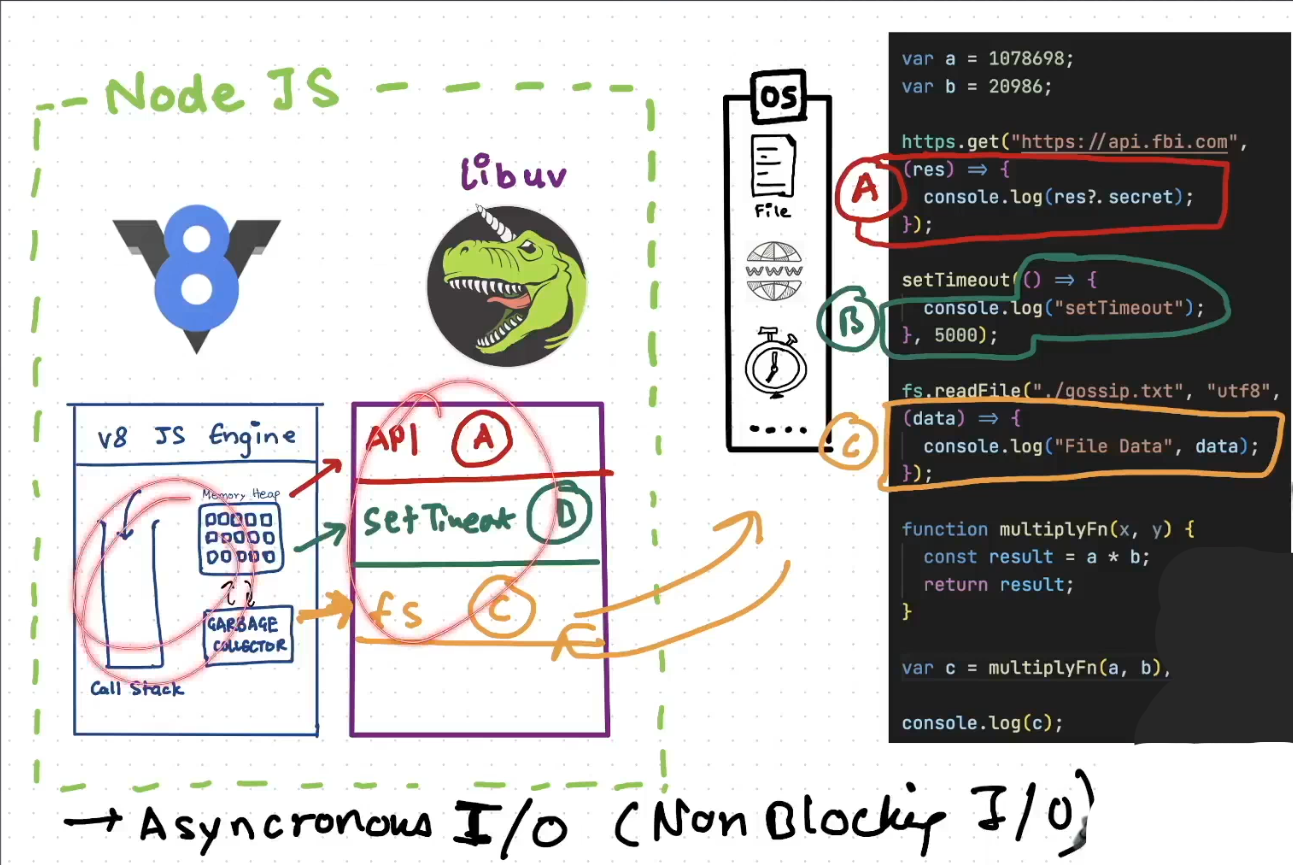 Node JS
libuv
8
V8 JS Engine
Memory Heap
GARBAGE
COLLECTOR
Call Stack
API A
setTimeout B
fs C
OS
File
WWW
A
B
C
var a = 1078698;
var b = 20986;
https.get("https://api.fbi.com",
(res) => {
console.log(res?.secret);
});
setTimeout(() => {
console.log("setTimeout");
}, 5000);
fs.readFile("./gossip.txt", "utf8",
(data) => {
console.log("File Data", data);
});
function multiplyFn(x, y) {
const result = a * b;
return result;
}
var c = multiplyFn(a, b),
console.log(c);
→ Asyncronous I/O (Non Blocking I/O)